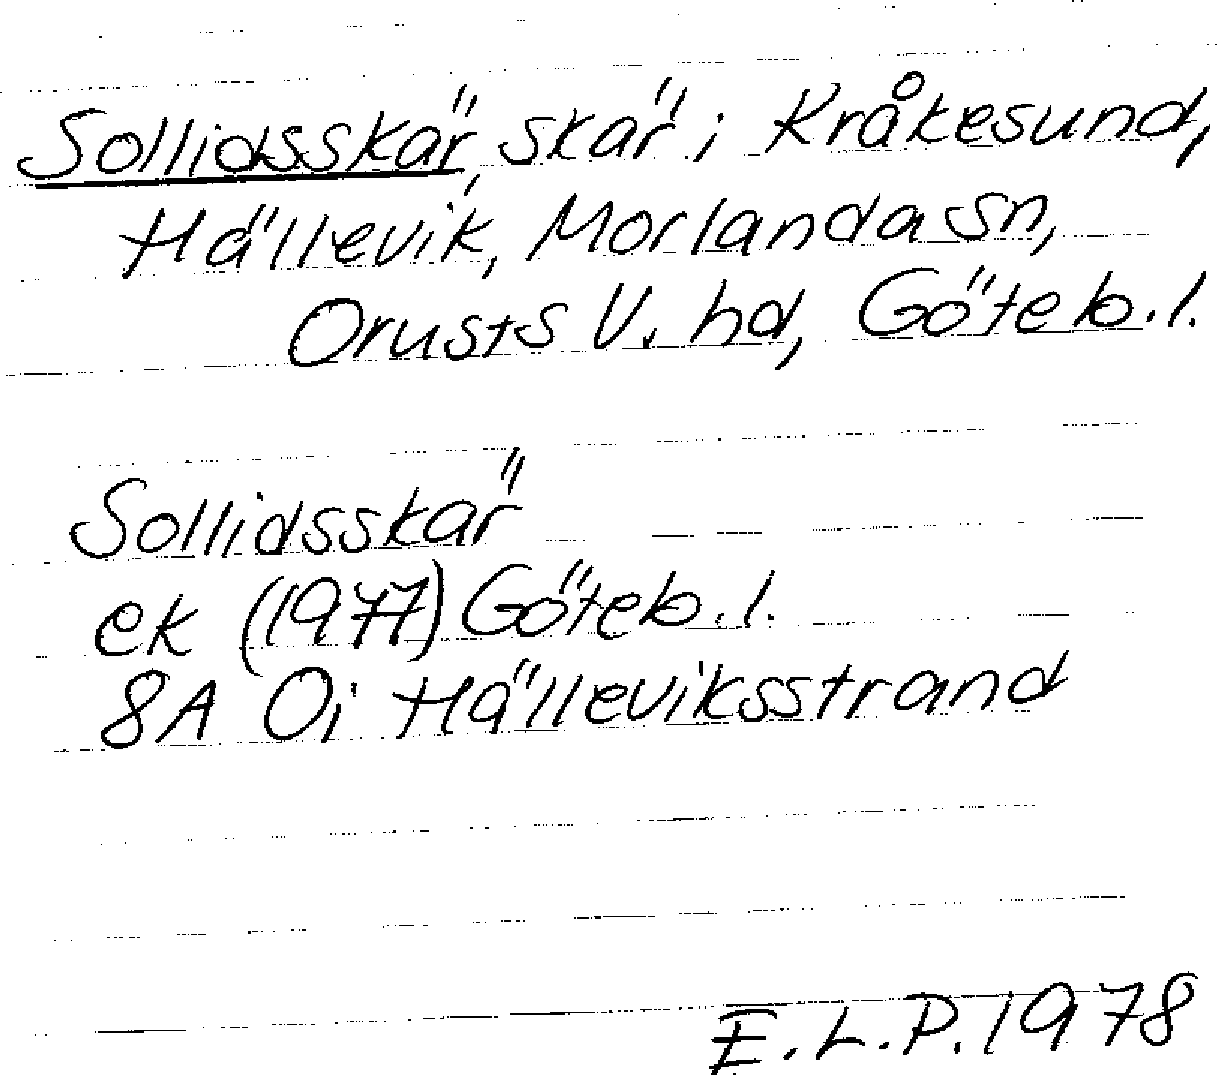 Sollidsskär, skär i Kråkesund,
Hällevik, Morlanda sn,
Orusts V. hd, Göteb. l.
Sollidsskär
ek (1977) Göteb. l.
8A 0i Hälleviksstrand
E.L.P. 1978